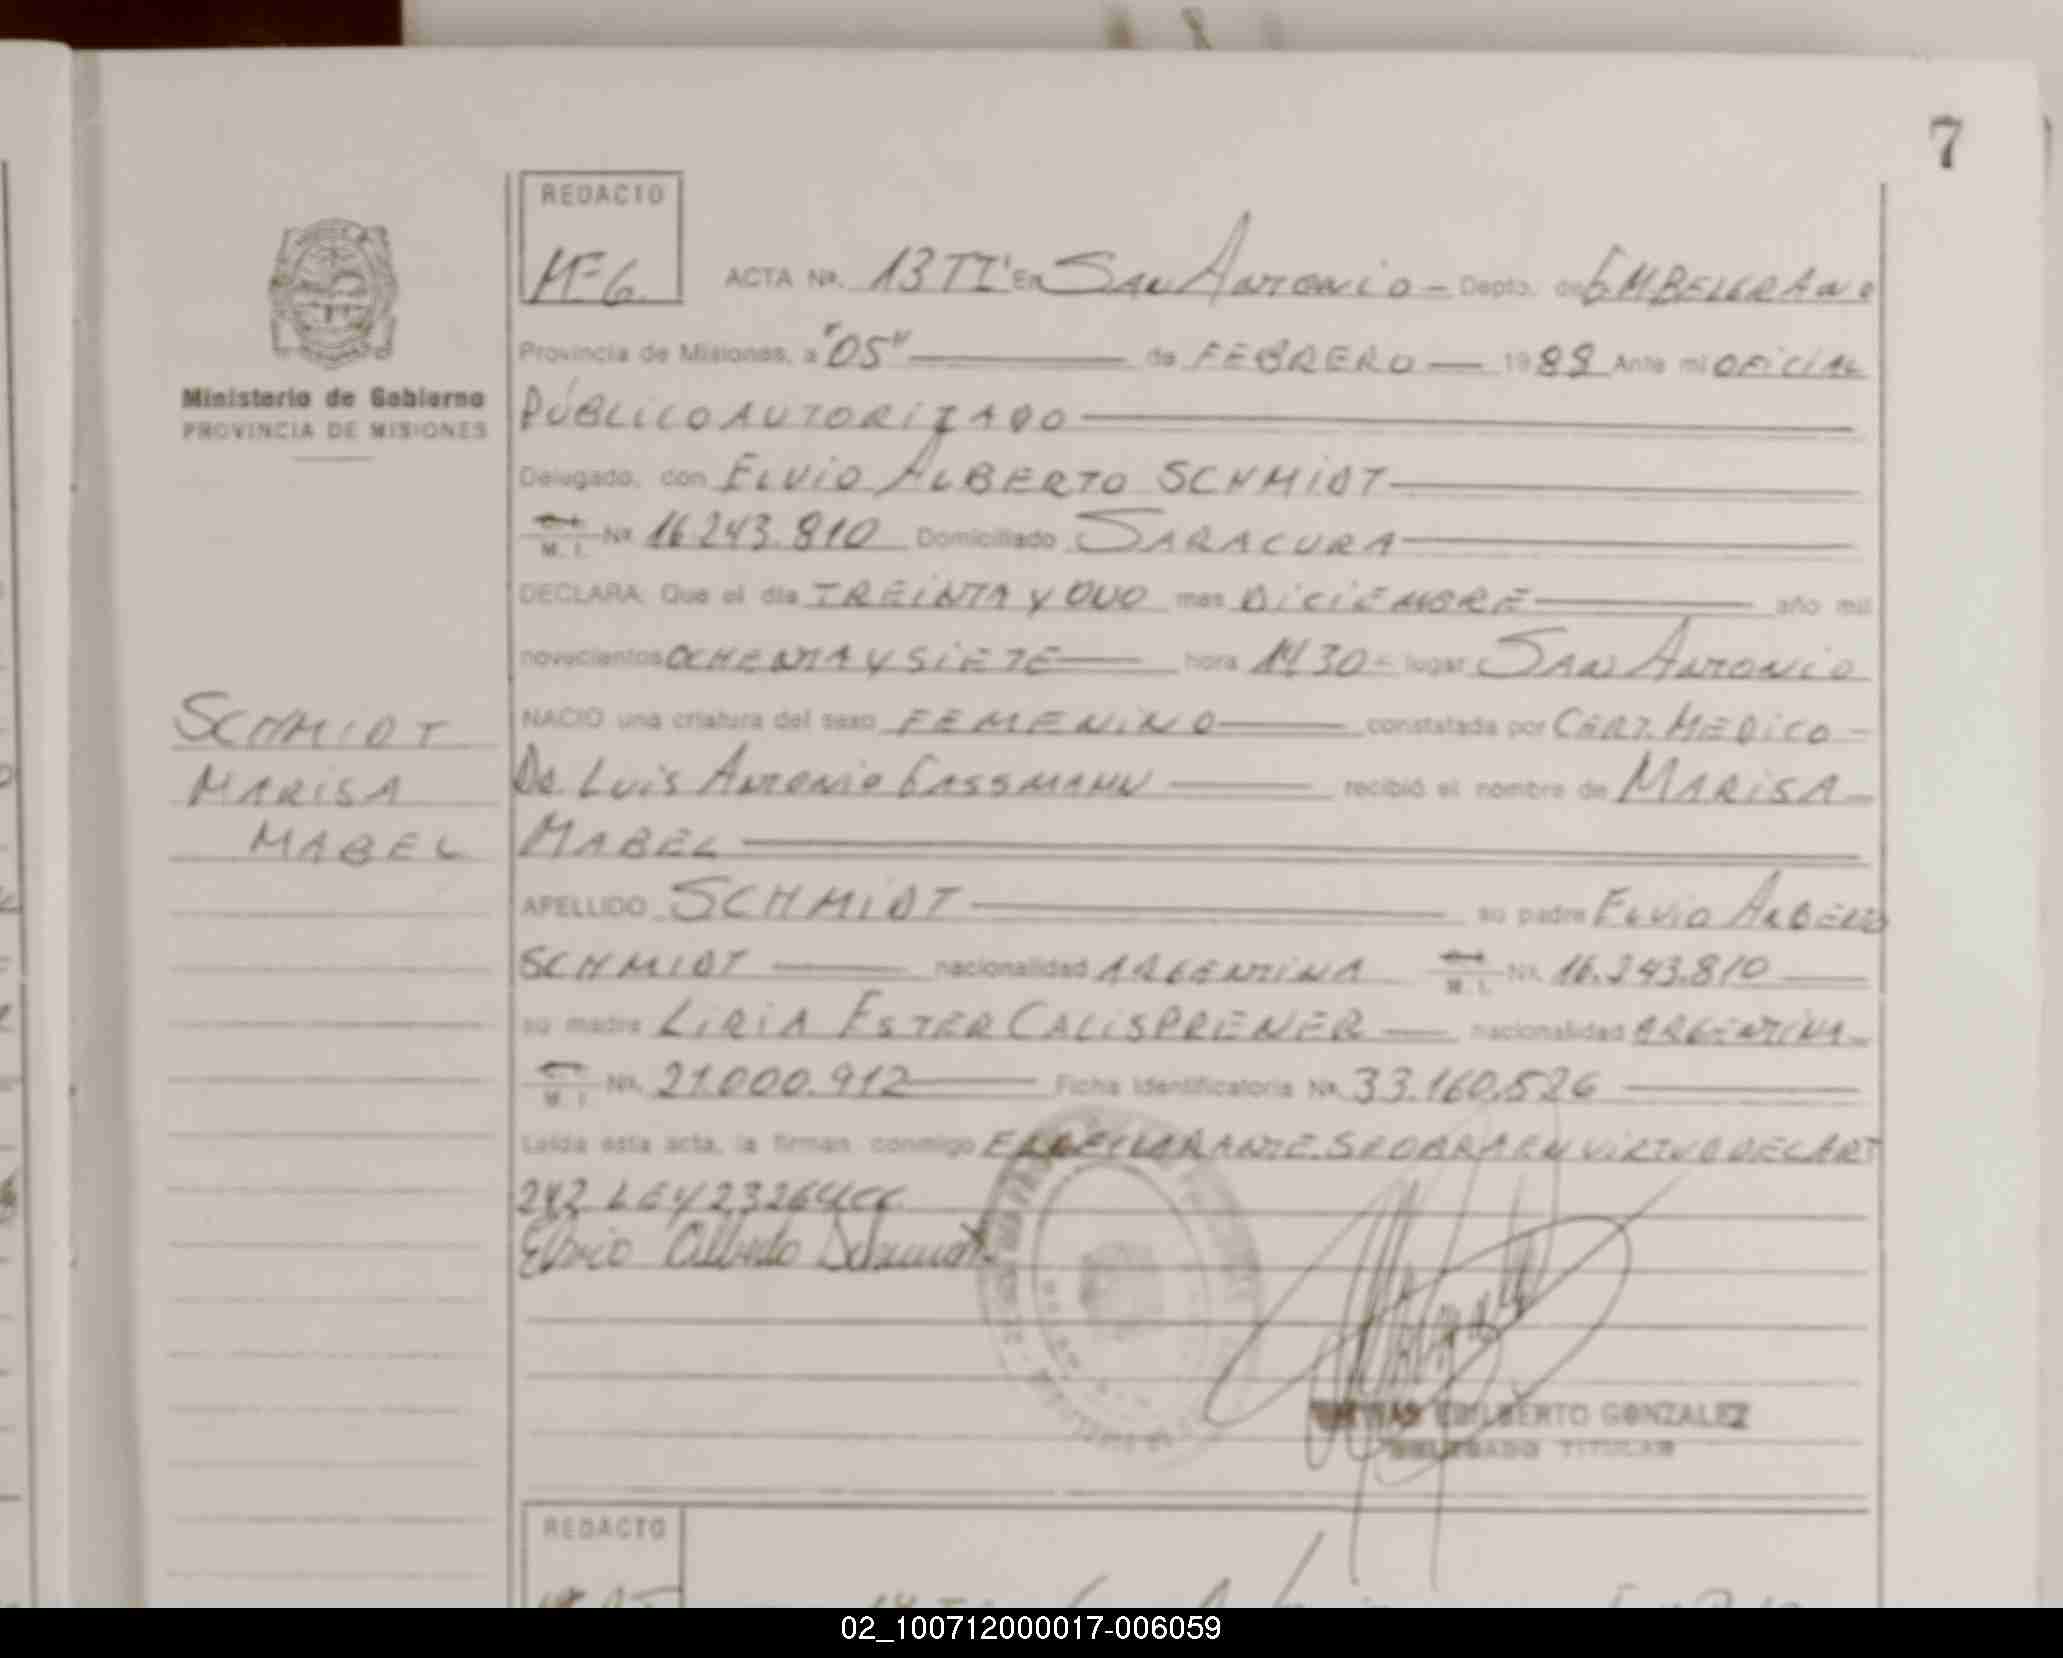 7
REDACTO
MFG.
ACTA Nº. 13 TI' En SAN ANTONIO - Depto. de GM BELGRANO
Provincia de Misiones, a "05" de FEBRERO 1988 Ante mi OFICIAL
PÚBLICO AUTORIZADO
Ministerio de Gobierno
PROVINCIA DE MISIONES
Delegado, con ELVIO ALBERTO SCHMIDT
M. I. Nº 16.243.810 Domiciliado SARACURA
DECLARA: Que el día TREINTA Y UNO mes DICIEMBRE año mil
novecientos OCHENTA Y SIETE hora 14 30 - lugar SAN ANTONIO
NACIO una criatura del sexo FEMENINO constatada por CERT. MEDICO -
DR. LUIS ANTONIO GASSMANN recibió el nombre de MARISA
MABEL
SCHMIDT
MARISA
MABEL
APELLIDO SCHMIDT su padre ELVIO ALBERTO
SCHMIDT nacionalidad ARGENTINA M. I. Nº. 16.243.810
su madre LIRIA ESTER CALISPRENER nacionalidad ARGENTINA
M. I. Nº. 21.000.912 Ficha Identificatoria Nº. 33.160.526
Leída esta acta, la firman conmigo EL DECLARANTE. SE OBRA EN VIRTUD DEL ART
242 LEY 23264 CC.
Elvio Alberto Schmidt
EDILBERTO GONZALEZ
DELEGADO TITULAR
REDACTO
02_100712000017-006059